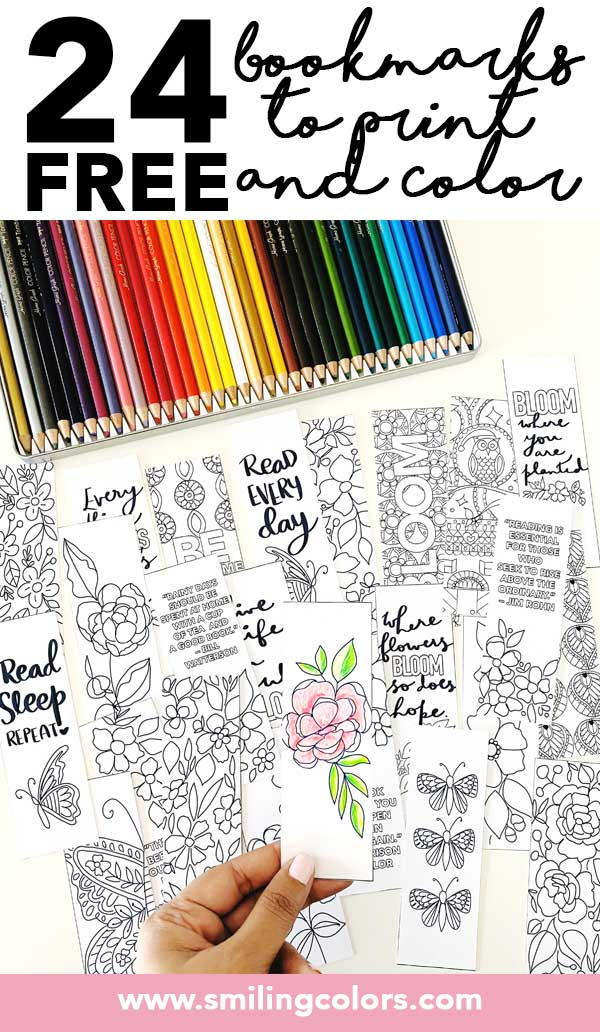 24 bookmarks
to print
FREE and color
BLOOM
where
you
are
planted
Read
EVERY
day
Every
BLOOM
BE
"READING IS
ESSENTIAL
FOR THOSE
WHO
SEEK TO RISE
ABOVE THE
ORDINARY."
- JIM ROHN
"RAINY DAYS
SHOULD BE
SPENT AT HOME
WITH A CUP
OF TEA AND
A GOOD BOOK."
- BILL
WATTERSON
where
flowers
BLOOM
so does
hope.
Read
Sleep
REPEAT
life
YOU
www.smilingcolors.com